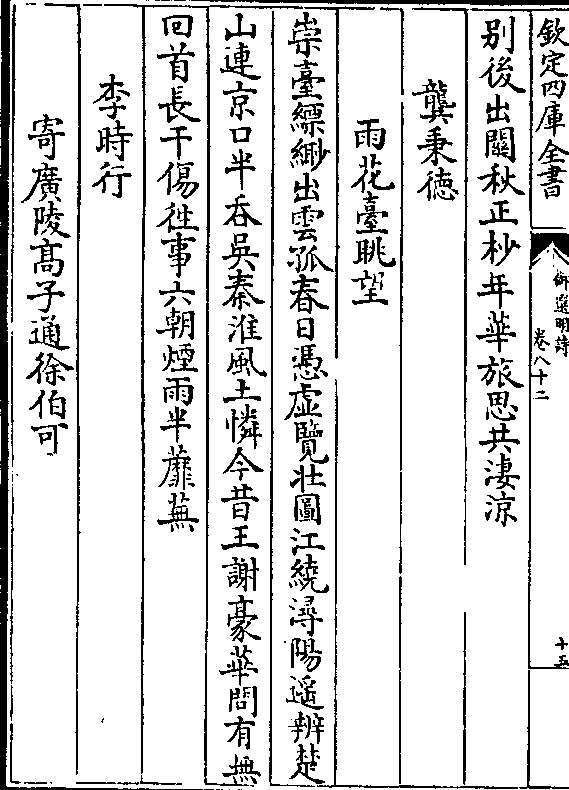 欽定四庫全書
御選明詩
卷八十二
十五
别後出關秋正杪年華旅思共淒涼
龔秉德
雨花臺眺望
崇臺縹緲出雲孤春日憑虚覽壯圖江繞潯陽遥辨楚
山連京口半吞吳秦淮風土憐今昔王謝豪華問有無
回首長干傷徃事六朝煙雨半蘼蕪
李時行
寄廣陵髙子通徐伯可